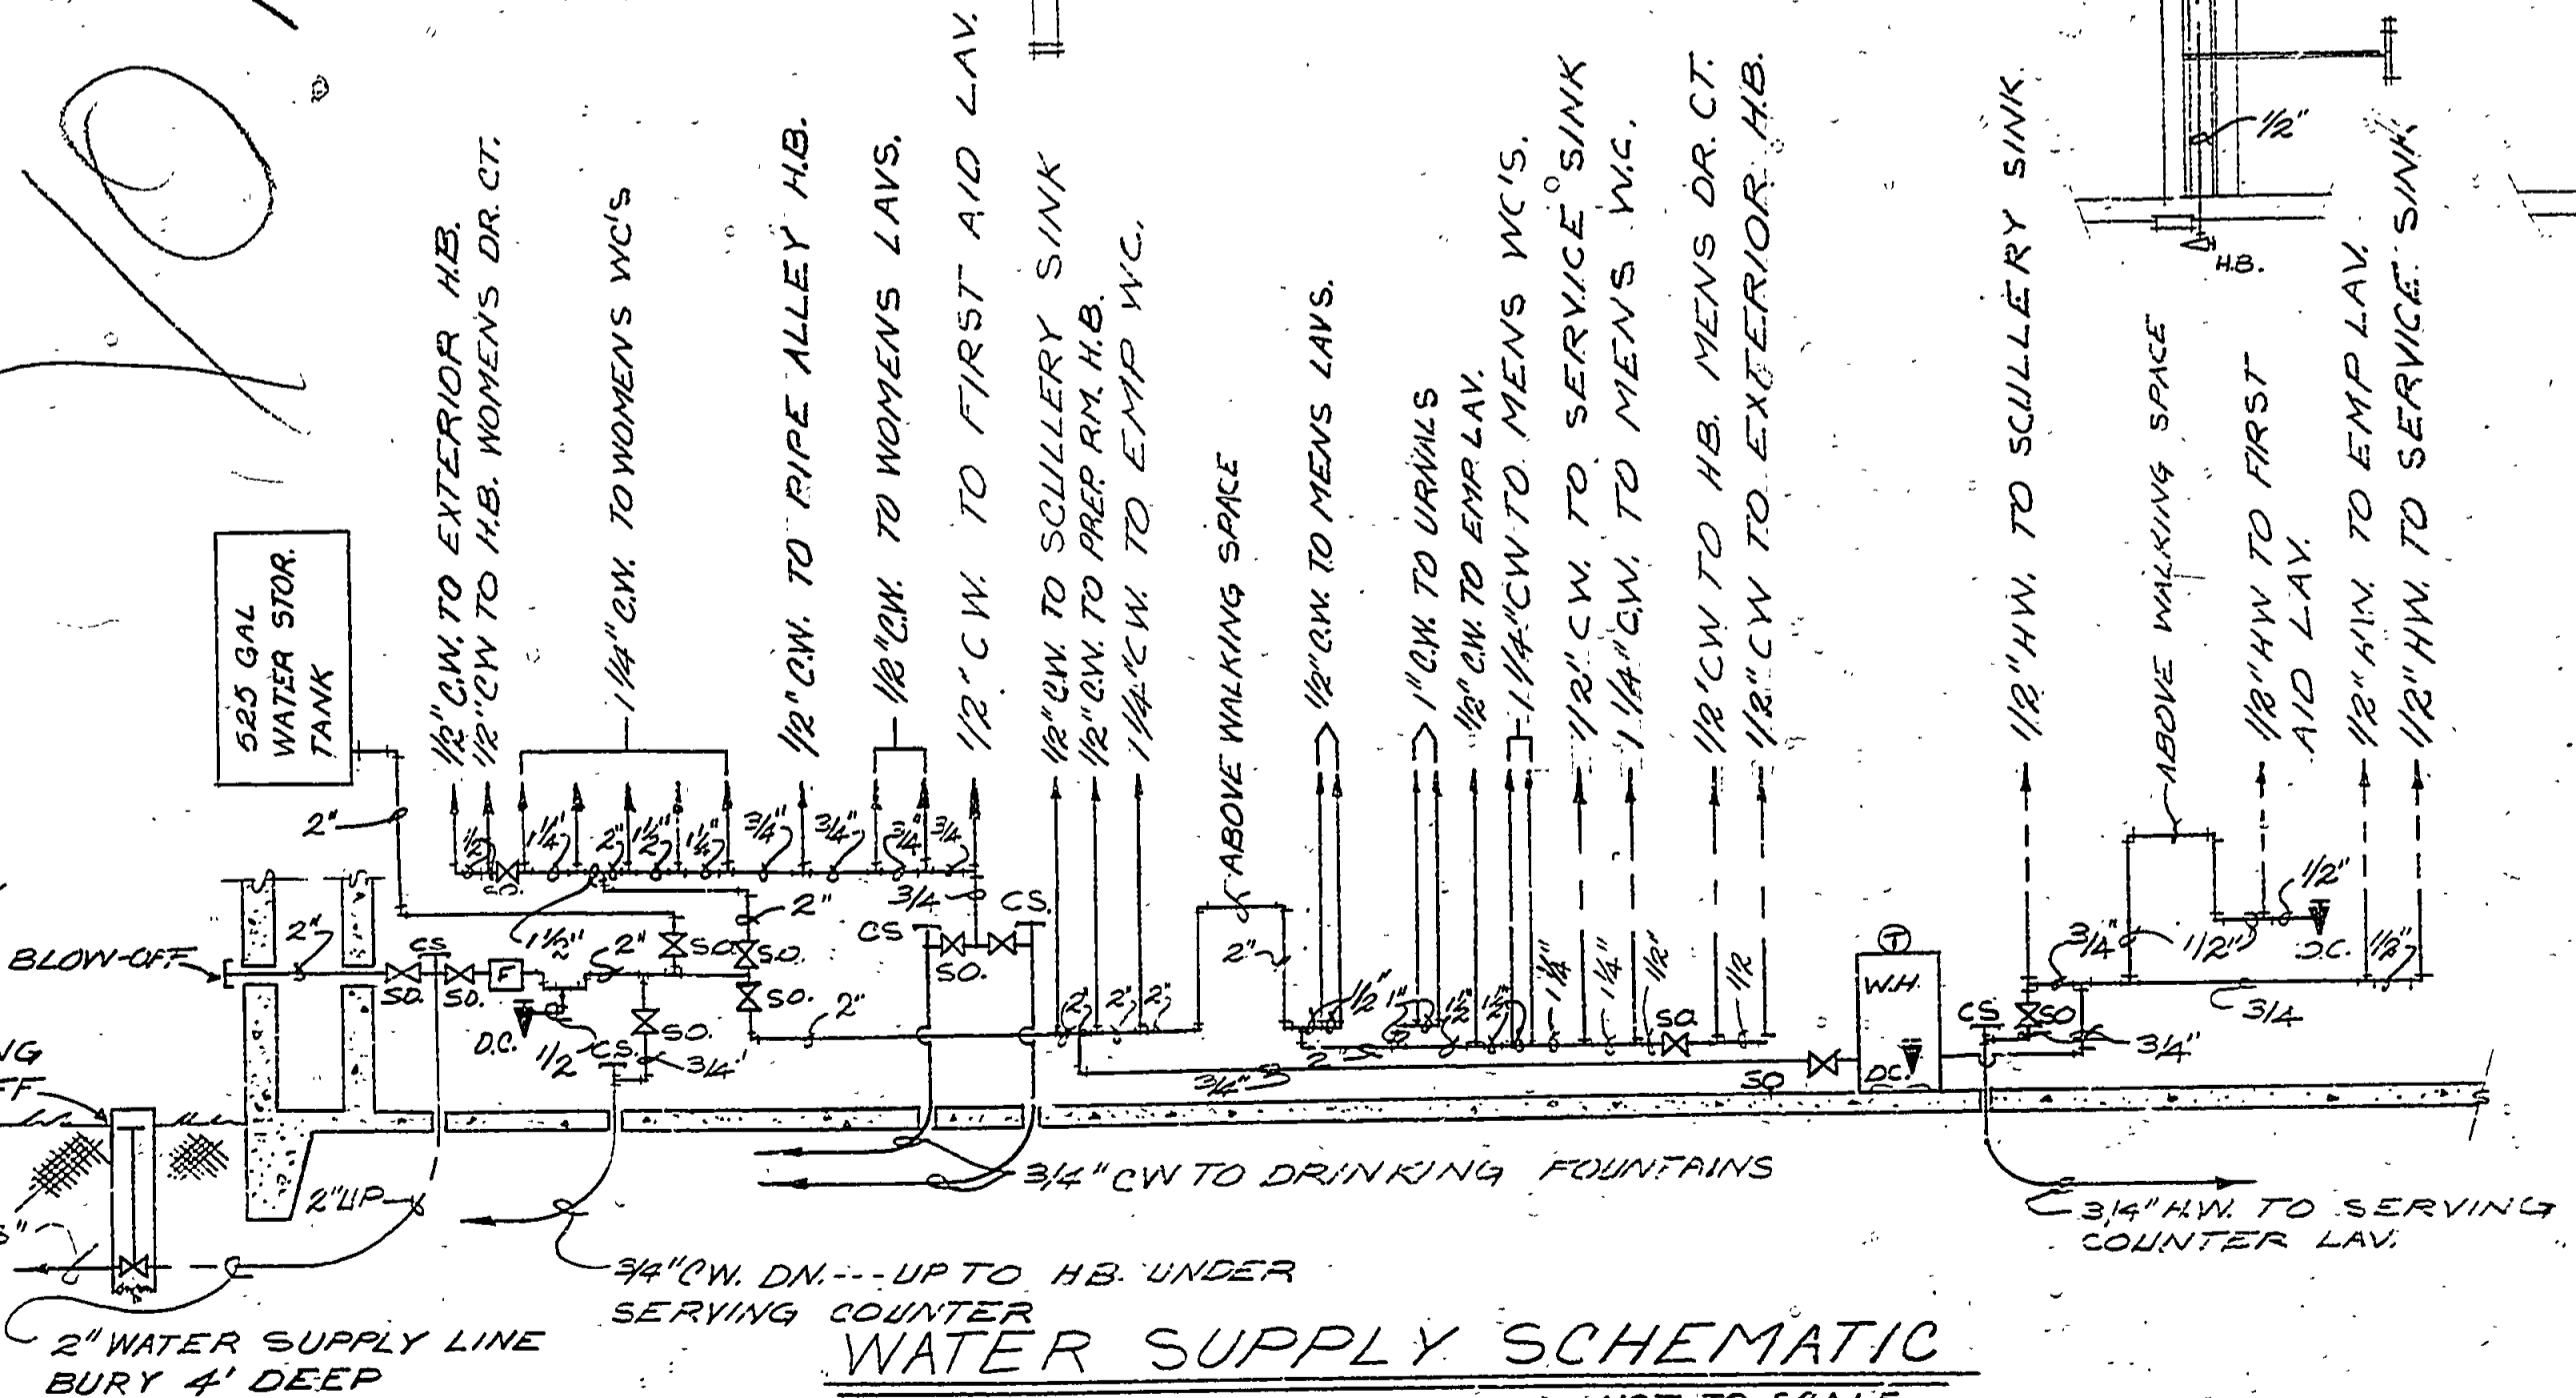 525 GAL
WATER STOR.
TANK
1/2" C.W. TO EXTERIOR H.B.
1/2" CW TO H.B. WOMENS DR. CT.
1 1/4" C.W. TO WOMENS WC'S
1/2" C.W. TO PIPE ALLEY H.B.
1/2" C.W. TO WOMENS LAVS.
1/2" C.W. TO FIRST AID LAV.
1/2" C.W. TO SCULLERY SINK
1/2" C.W. TO PREP. RM. H.B.
1 1/4" CW. TO EMP WC.
ABOVE WALKING SPACE
1/2" C.W. TO MENS LAVS.
1" C.W. TO URNALS
1/2" C.W. TO EMP. LAV.
1 1/4" CW TO MENS WC'S.
1/2" CW. TO SERVICE SINK
1 1/4" C.W. TO MENS W.C.
1/2" CW TO HB. MENS DR. CT.
1/2" CW TO EXTERIOR H.B.
1/2" HW. TO SCULLERY SINK
ABOVE WALKING SPACE
1/2" HW TO FIRST
AID LAV.
1/2" H.W. TO EMP LAV.
1/2" HW. TO SERVICE SINK
1/2"
H.B.
2"
1/2
S.O.
1 1/4"
2"
1 1/2"
1 1/4"
3/4"
3/4"
3/4"
3/4
3/4
1 1/2"
2"
2"
CS
CS.
SO.
BLOW-OFF
2"
CS
SO.
SO.
F
D.C.
1/2
2"
SO.
SO.
SO.
SO.
CS.
3/4"
2"
2"
2"
2"
2"
1/2"
1"
1 1/2"
1 1/2"
1 1/4"
1 1/4"
1/2"
SO.
1/2
2"
3/4"
SO
T
W.H.
D.C.
CS
SO
3/4"
3/4"
1/2"
1/2"
D.C.
1/2"
3/4
2" UP
3/4" CW TO DRINKING FOUNTAINS
3/4" H.W. TO SERVING
COUNTER LAV.
3/4" CW. DN.---UP TO HB. UNDER
SERVING COUNTER
2" WATER SUPPLY LINE
BURY 4' DEEP
WATER SUPPLY SCHEMATIC
NOT TO SCALE